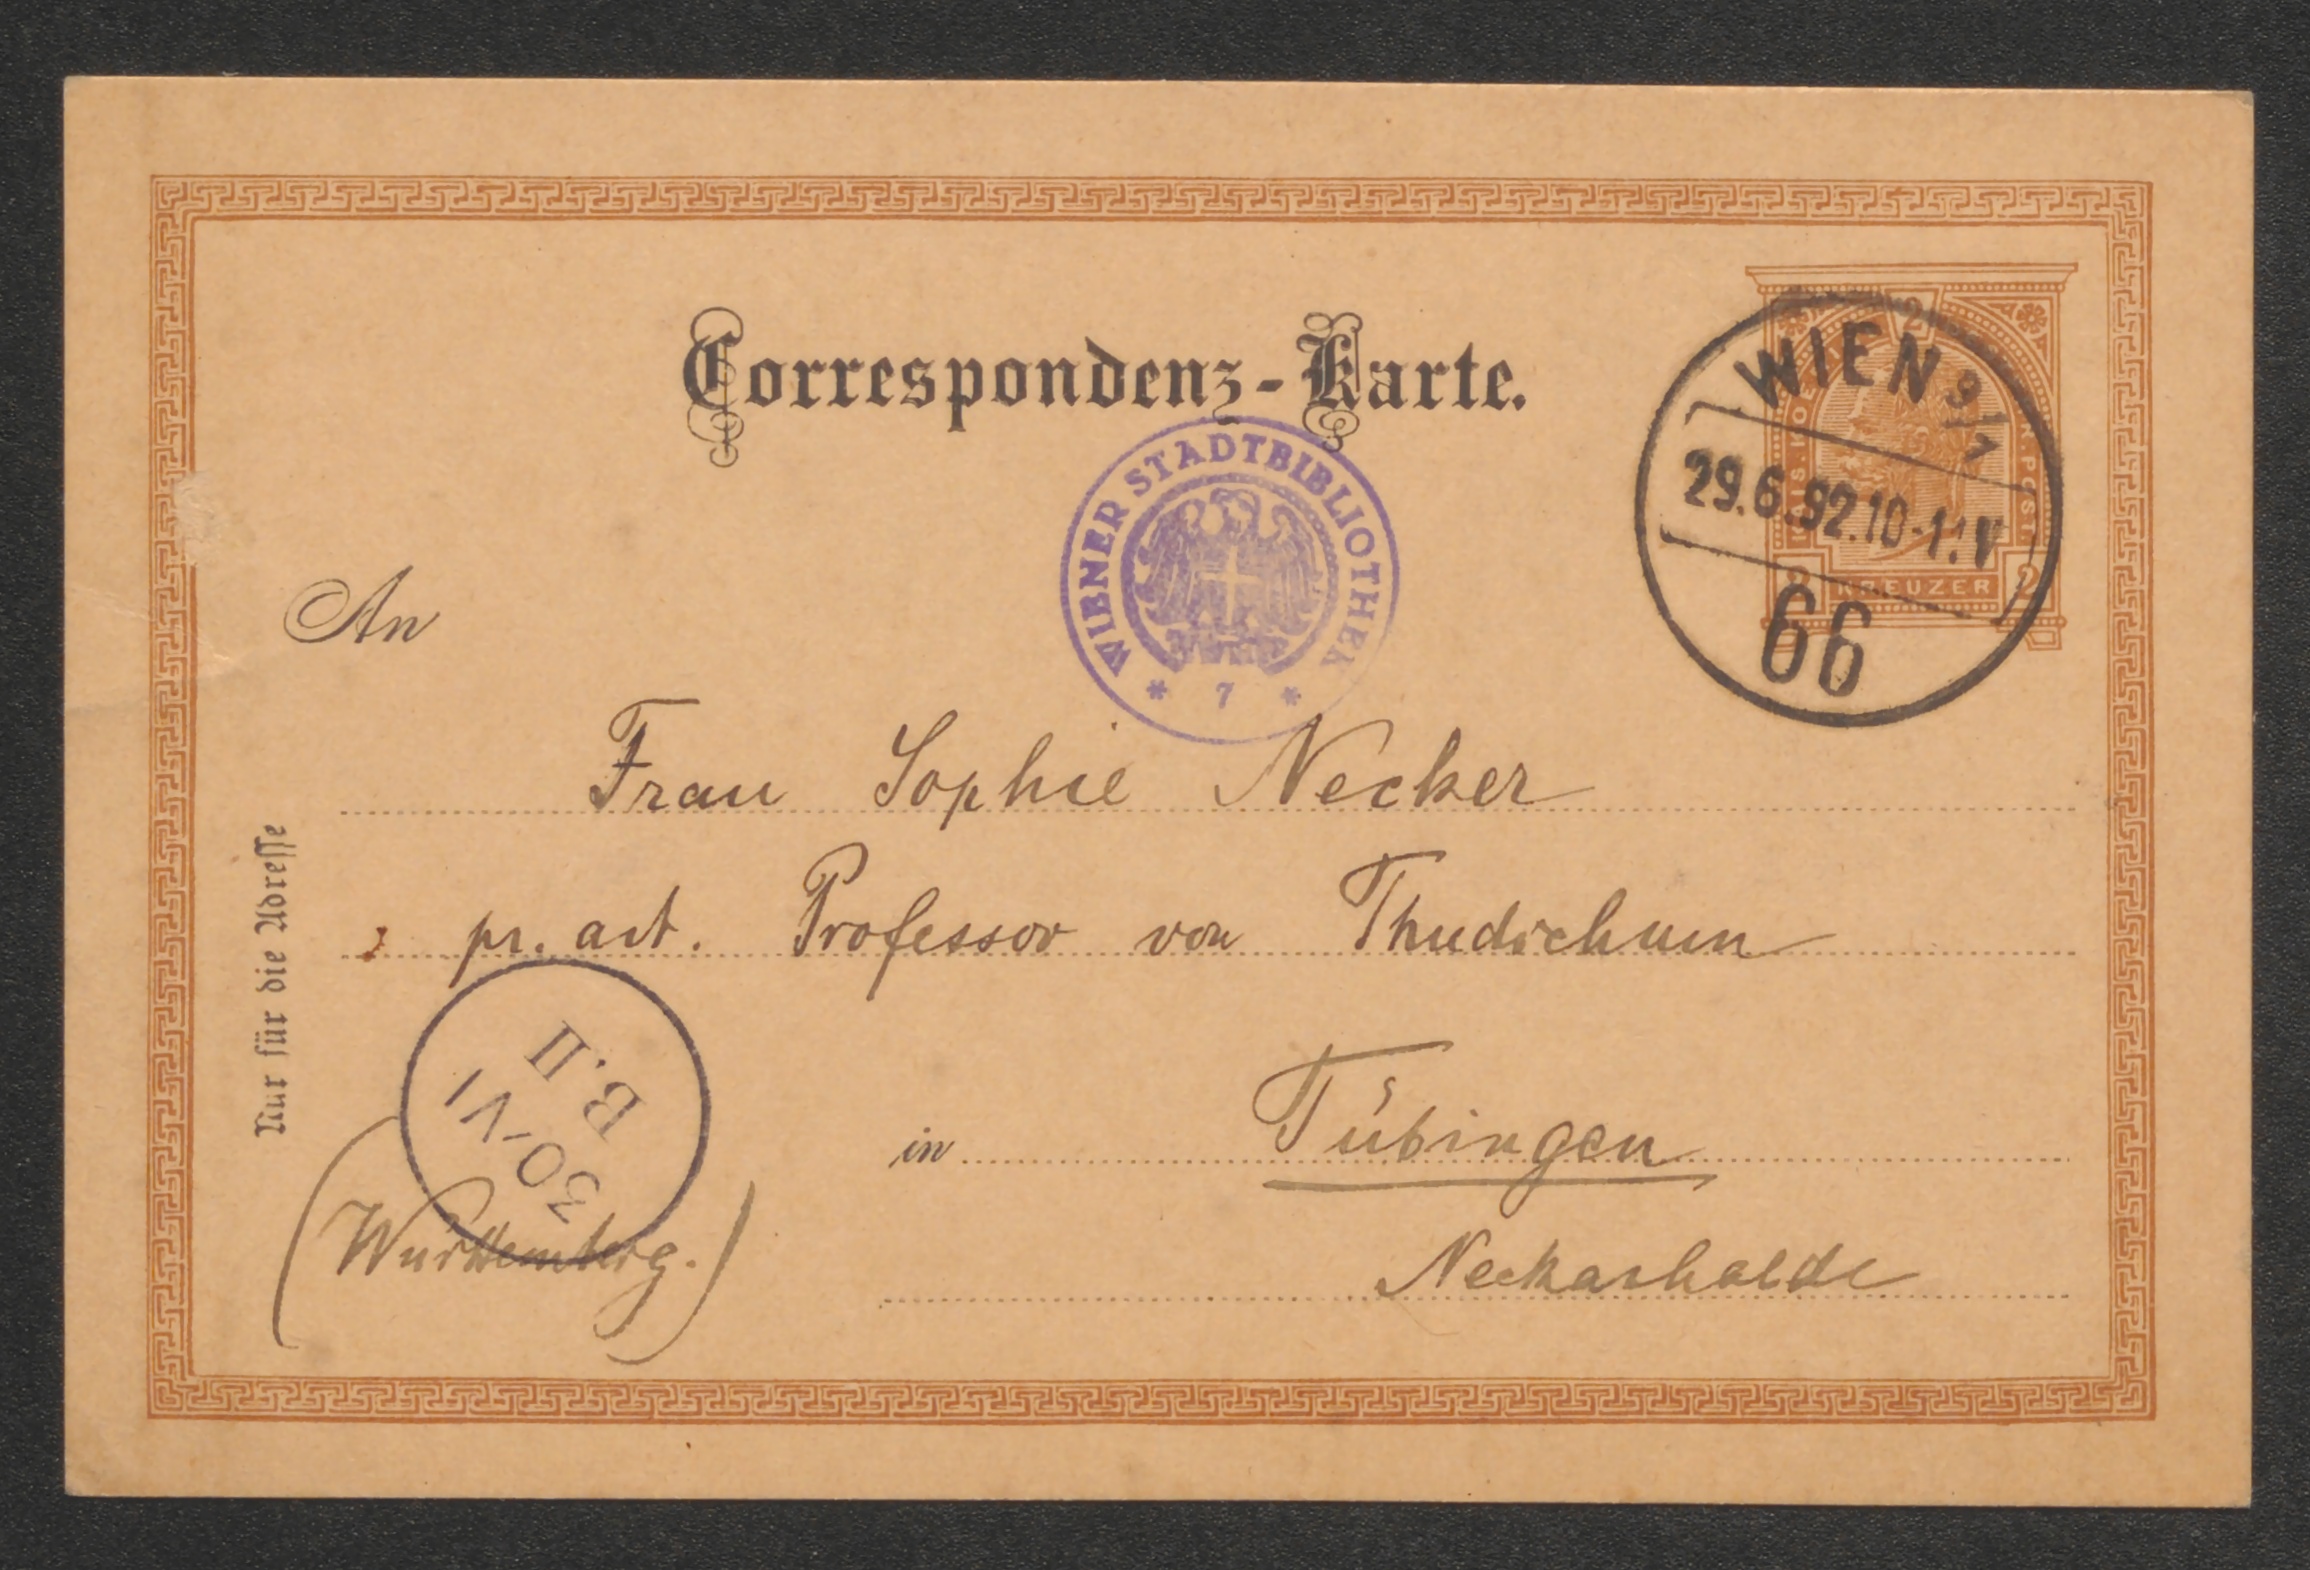 Correspondenz-Karte.
WIEN 9/1
29.6.92.10-11.V
66
2
KREUZER
WIENER STADTBIBLIOTHEK
* 7 *
An
Frau Sophie Necker
pr. adr. Professor von Thudichum
in Tübingen
Neckarhalde
(Württemberg.)
Nur für die Adresse
30-VI
B.II